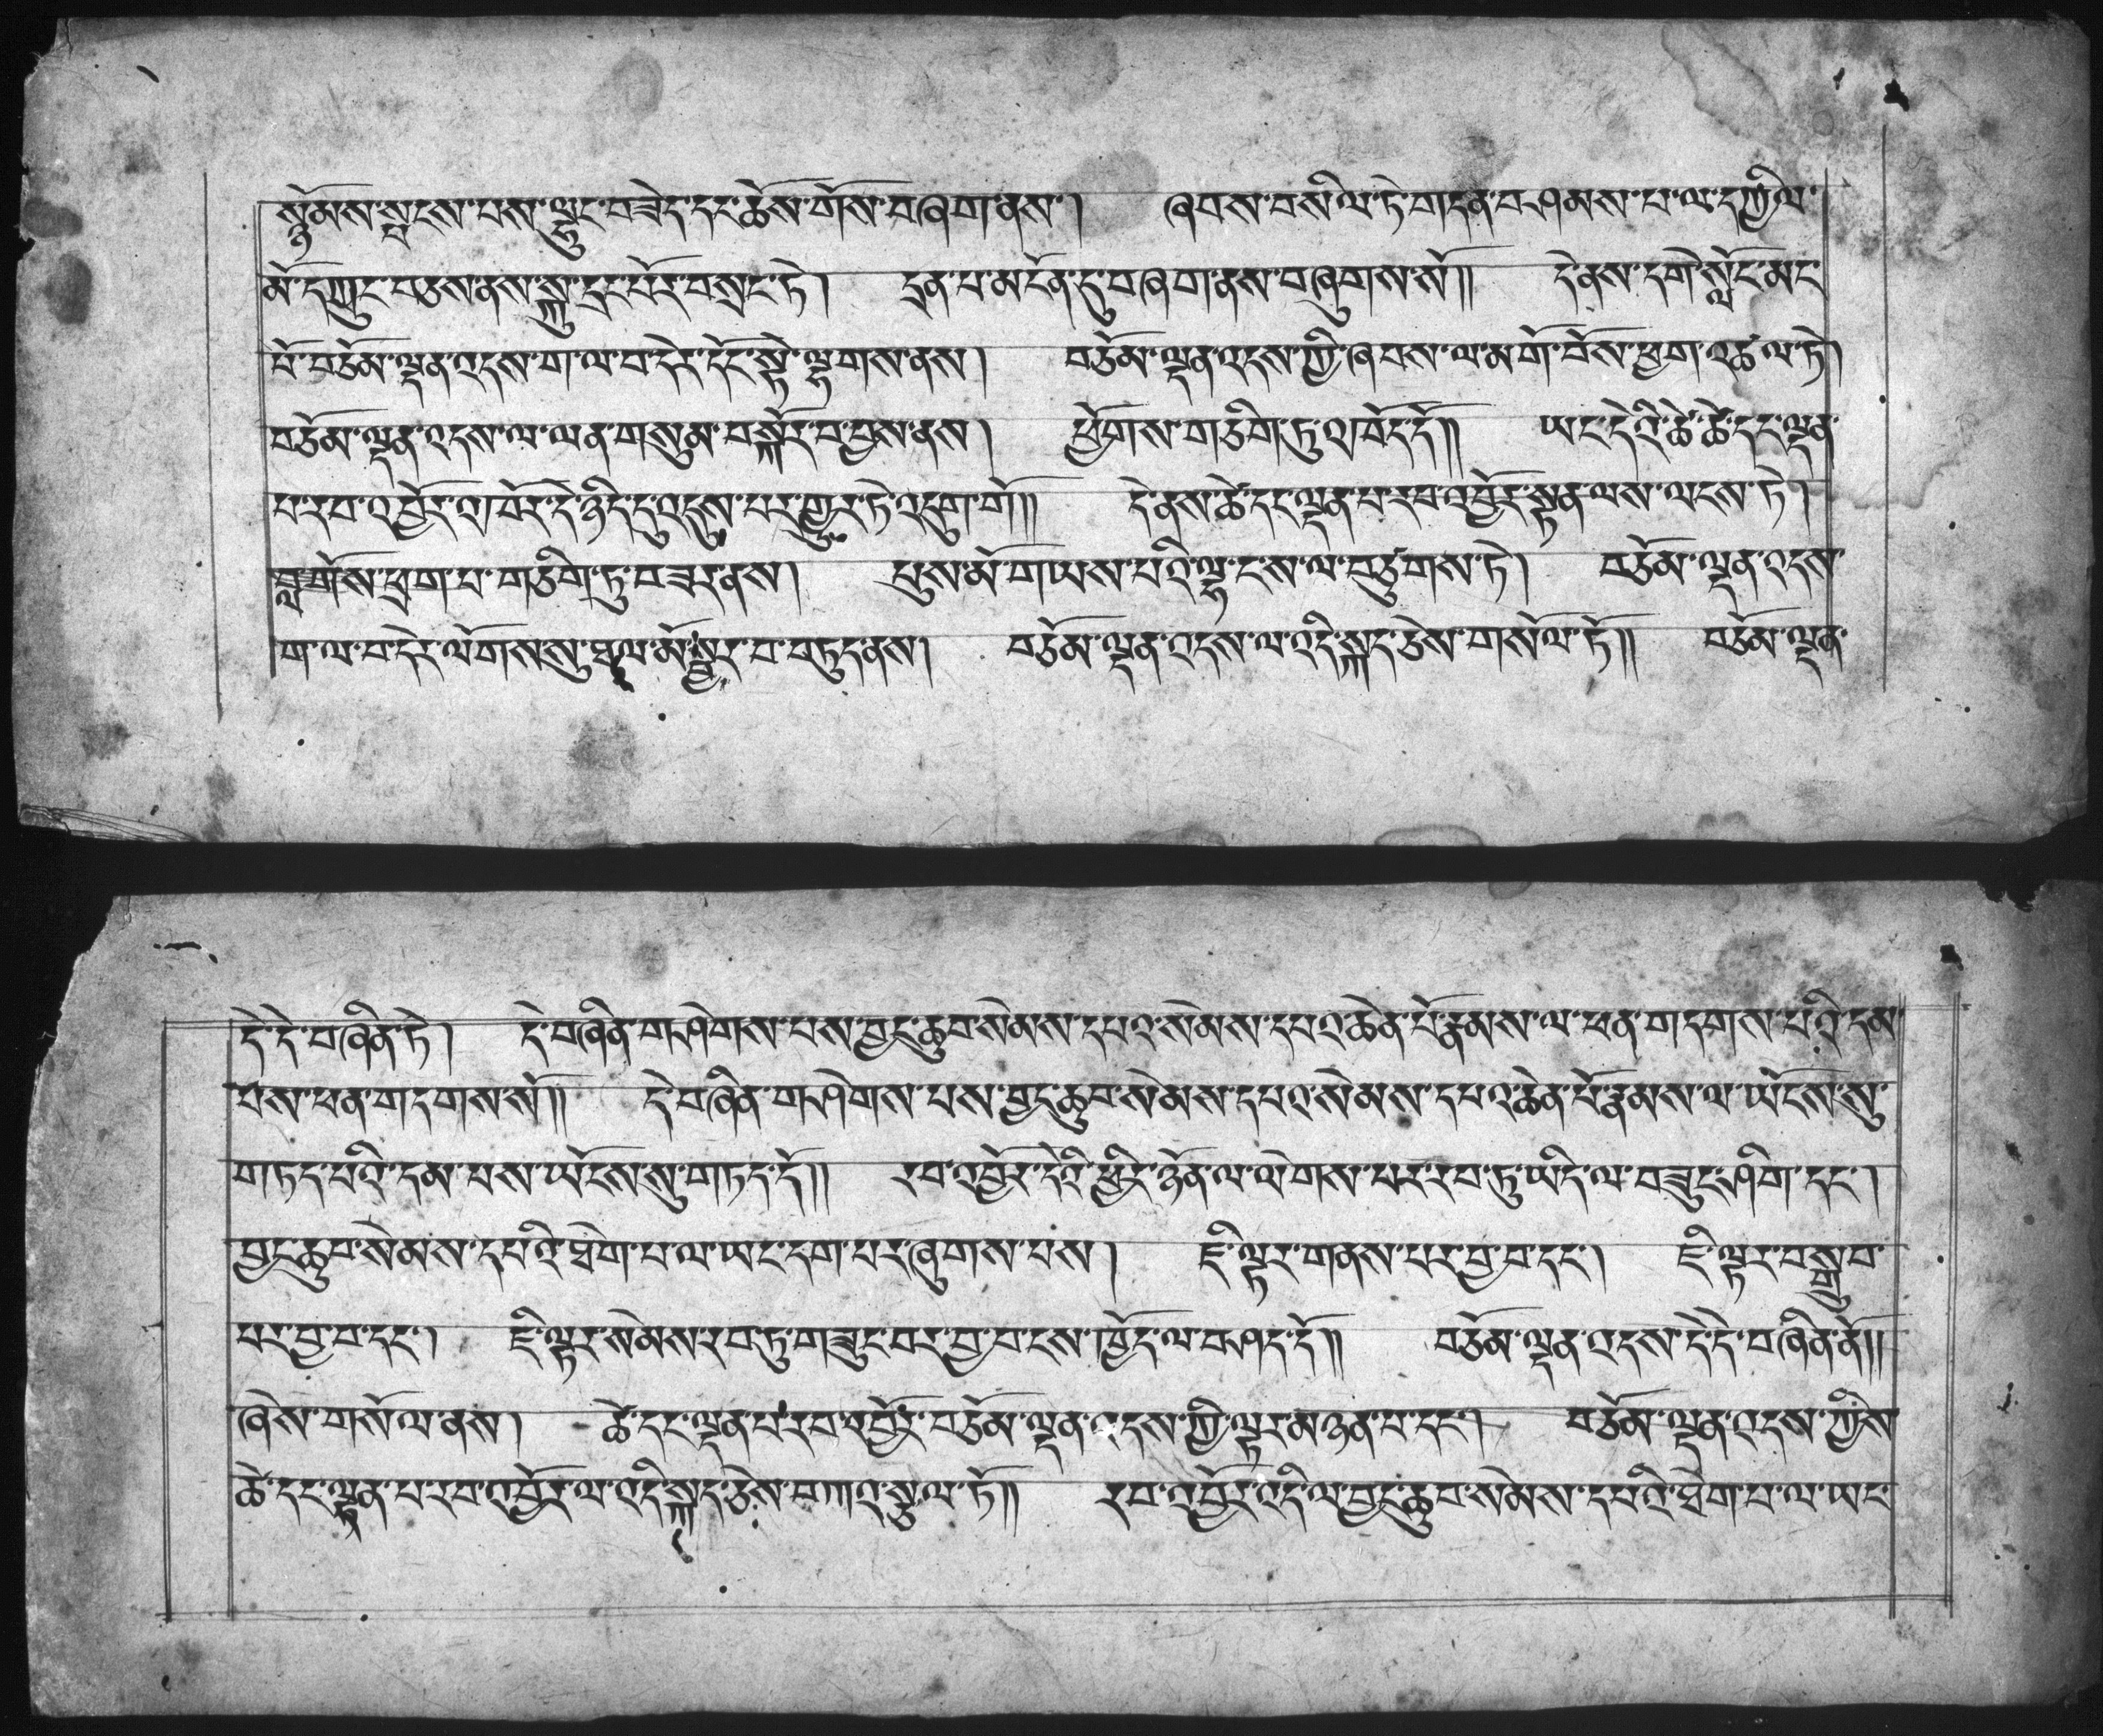 སྙོམས་སྤངས་པས་ལྷུང་བཟེད་དང་ཆོས་གོས་བཞག་ནས། ཞབས་བསིལ་ཏེ་གདན་བཤམས་པ་ལ་དཀྱིལ་
མོ་དཀྲུང་བཅས་ནས་སྐུ་དྲང་པོར་བསྲང་ཏེ། དྲན་པ་མངོན་དུ་བཞག་ནས་བཞུགས་སོ།། དེ་ནས་དགེ་སློང་མང་
པོ་བཅོམ་ལྡན་འདས་ག་ལ་བ་དེར་དོང་སྟེ་ལྷགས་ནས། བཅོམ་ལྡན་འདས་ཀྱི་ཞབས་ལ་མགོ་བོས་ཕྱག་འཚལ་ཏེ།
བཅོམ་ལྡན་འདས་ལ་ལན་གསུམ་བསྐོར་བ་བྱས་ནས། ཕྱོགས་གཅིག་ཏུ་འཁོད་དོ།། ཡང་དེའི་ཚེ་ཚེ་དང་ལྡན་
པ་རབ་འབྱོར་འཁོར་དེ་ཉིད་དུ་འདུས་པར་གྱུར་ཏེ་འདུག་གོ།། དེ་ནས་ཚེ་དང་ལྡན་པ་རབ་འབྱོར་སྟན་ལས་ལངས་ཏེ།
བླ་གོས་ཕྲག་པ་གཅིག་ཏུ་བཟར་ནས། པུས་མོ་གཡས་པའི་ལྷ་ང་ས་ལ་བཙུགས་ཏེ། བཅོམ་ལྡན་འདས་
ག་ལ་བ་དེར་ལོགས་སུ་ཐལ་མོ་སྦྱར་བ་བཏུད་ནས། བཅོམ་ལྡན་འདས་ལ་འདི་སྐད་ཅེས་གསོལ་ཏོ།། བཅོམ་ལྡན་
དེ་དེ་བཞིན་ཏེ། དེ་བཞིན་གཤེགས་པས་བྱང་ཆུབ་སེམས་དཔའ་སེམས་དཔའ་ཆེན་པོ་རྣམས་ལ་ཕན་གདགས་པའི་དམ་
པས་ཕན་གདགས་སོ།། དེ་བཞིན་གཤེགས་པས་བྱང་ཆུབ་སེམས་དཔའ་སེམས་དཔའ་ཆེན་པོ་རྣམས་ལ་ཡོངས་སུ་
གཏད་པའི་དམ་པས་ཡོངས་སུ་གཏད་དོ།། རབ་འབྱོར་དེའི་ཕྱིར་ཉོན་ལ་ལེགས་པར་རབ་ཏུ་ཡིད་ལ་བཟུང་ཤིག་དང་།
བྱང་ཆུབ་སེམས་དཔའི་ཐེག་པ་ལ་ཡང་དག་པར་ཞུགས་པས། ཇི་ལྟར་གནས་པར་བྱ་བ་དང་། ཇི་ལྟར་བསྒྲུབ་
པར་བྱ་བ་དང་། ཇི་ལྟར་སེམས་རབ་ཏུ་གཟུང་བར་བྱ་བ་ངས་ཁྱོད་ལ་བཤད་དོ།། བཅོམ་ལྡན་འདས་དེ་དེ་བཞིན་ནོ།།
ཞེས་གསོལ་ནས། ཚེ་དང་ལྡན་པ་རབ་འབྱོར་བཅོམ་ལྡན་འདས་ཀྱི་ལྟར་མཉན་པ་དང་། བཅོམ་ལྡན་འདས་ཀྱིས
ཚེ་དང་ལྡན་པ་རབ་འབྱོར་ལ་འདི་སྐད་ཅེས་བཀའ་སྩལ་ཏོ།། རབ་འབྱོར་འདི་ལ་བྱང་ཆུབ་སེམས་དཔའི་ཐེག་པ་ལ་ཡང